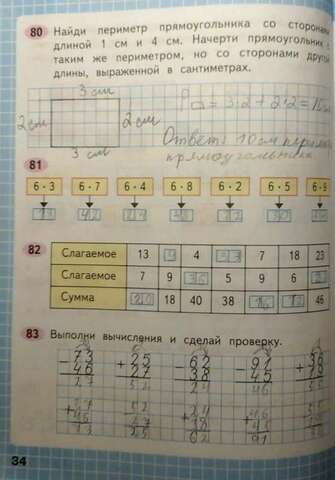 80 Найди периметр прямоугольника со сторонами
длиной 1 см и 4 см. Начерти прямоугольник с
таким же периметром, но со сторонами другой
длины, выраженной в сантиметрах.
3 см
2 см 2 см
3 см
P = 3·2 + 2·2 =
Ответ: 10 см периметр
прямоугольника
81
6 · 3 6 · 7 6 · 4 6 · 8 6 · 2 6 · 5 6 ·
42
82 Слагаемое 13 9 4 33 7 18 23
Слагаемое 7 9 36 5 9 6
Сумма 20 18 40 38 16 46
83 Выполни вычисления и сделай проверку.
- 73 + 25 - 62 - 91
46 27 38 45
27 52 24 46
+ 27 52 + 24 + 46
46 27 38 45
73 25 62 91
34